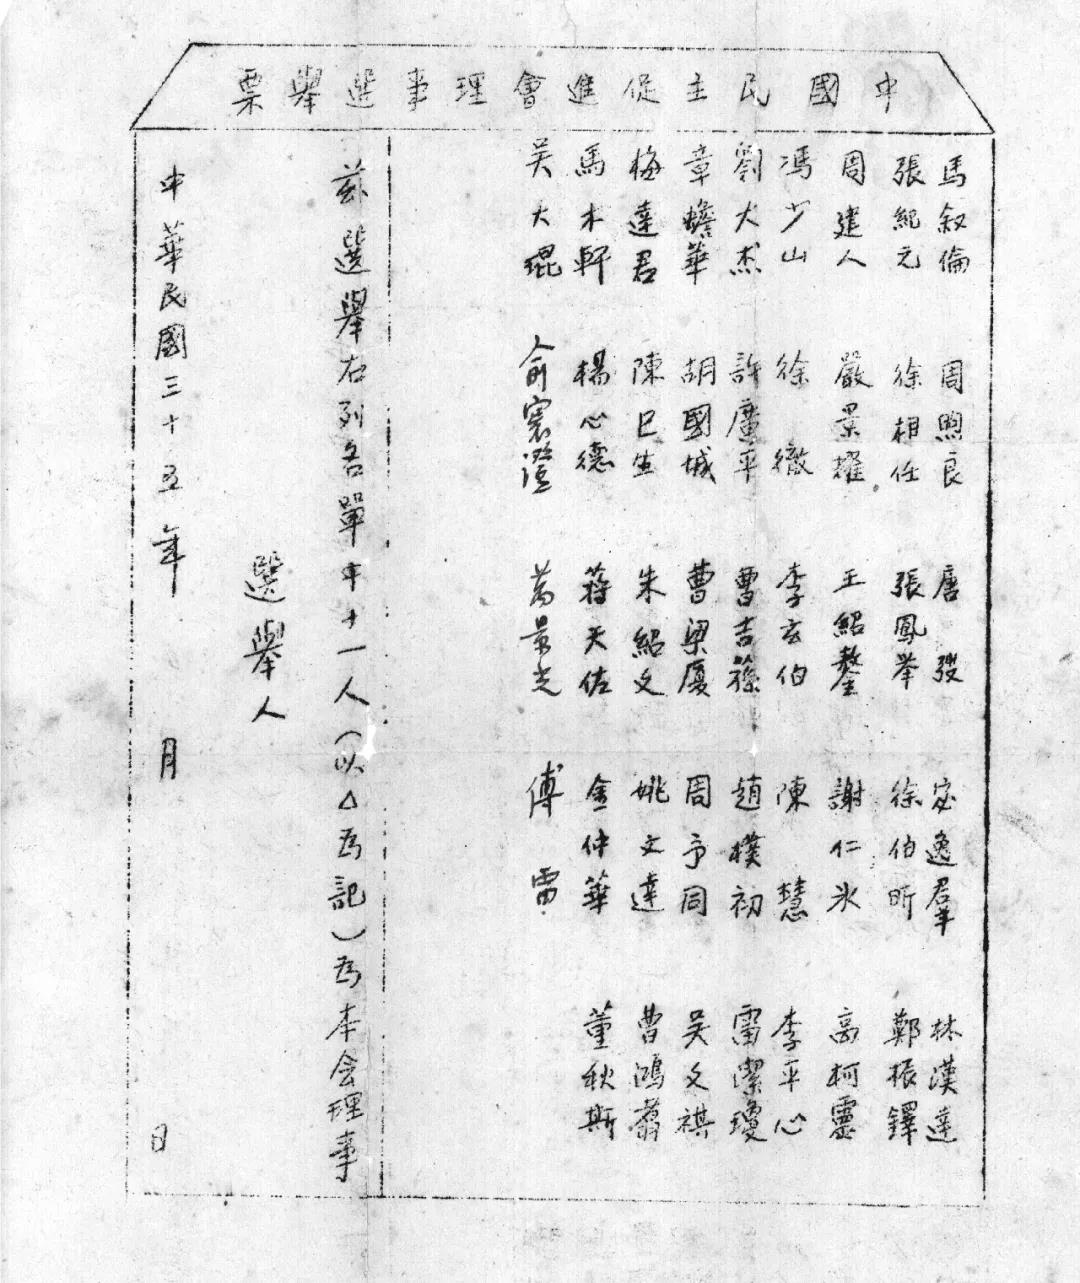 中國民主促進會理事選舉票
馬叙倫 周煦良 唐弢 宓逸羣 林漢達
張紀元 徐相任 張鳳举 徐伯昕 鄭振鐸
周建人 嚴景耀 王紹鏊 謝仁冰 高柯靈
馮少山 徐徹 李玄伯 陳慧 李平心
劉大杰 許廣平 曹吉蓀 趙樸初 雷潔瓊
章蟾華 胡國城 曹梁厦 周予同 吴文祺
梅達君 陳巳生 朱紹文 姚文達 曹鴻翥
馬木軒 楊心德 蒋天佐 金仲華 董秋斯
吴大琨 俞寰澄 萬景光 傅雷
兹選舉右列名單中十一人(以△為記)為本会理事
選舉人
中華民國三十五年 月 日